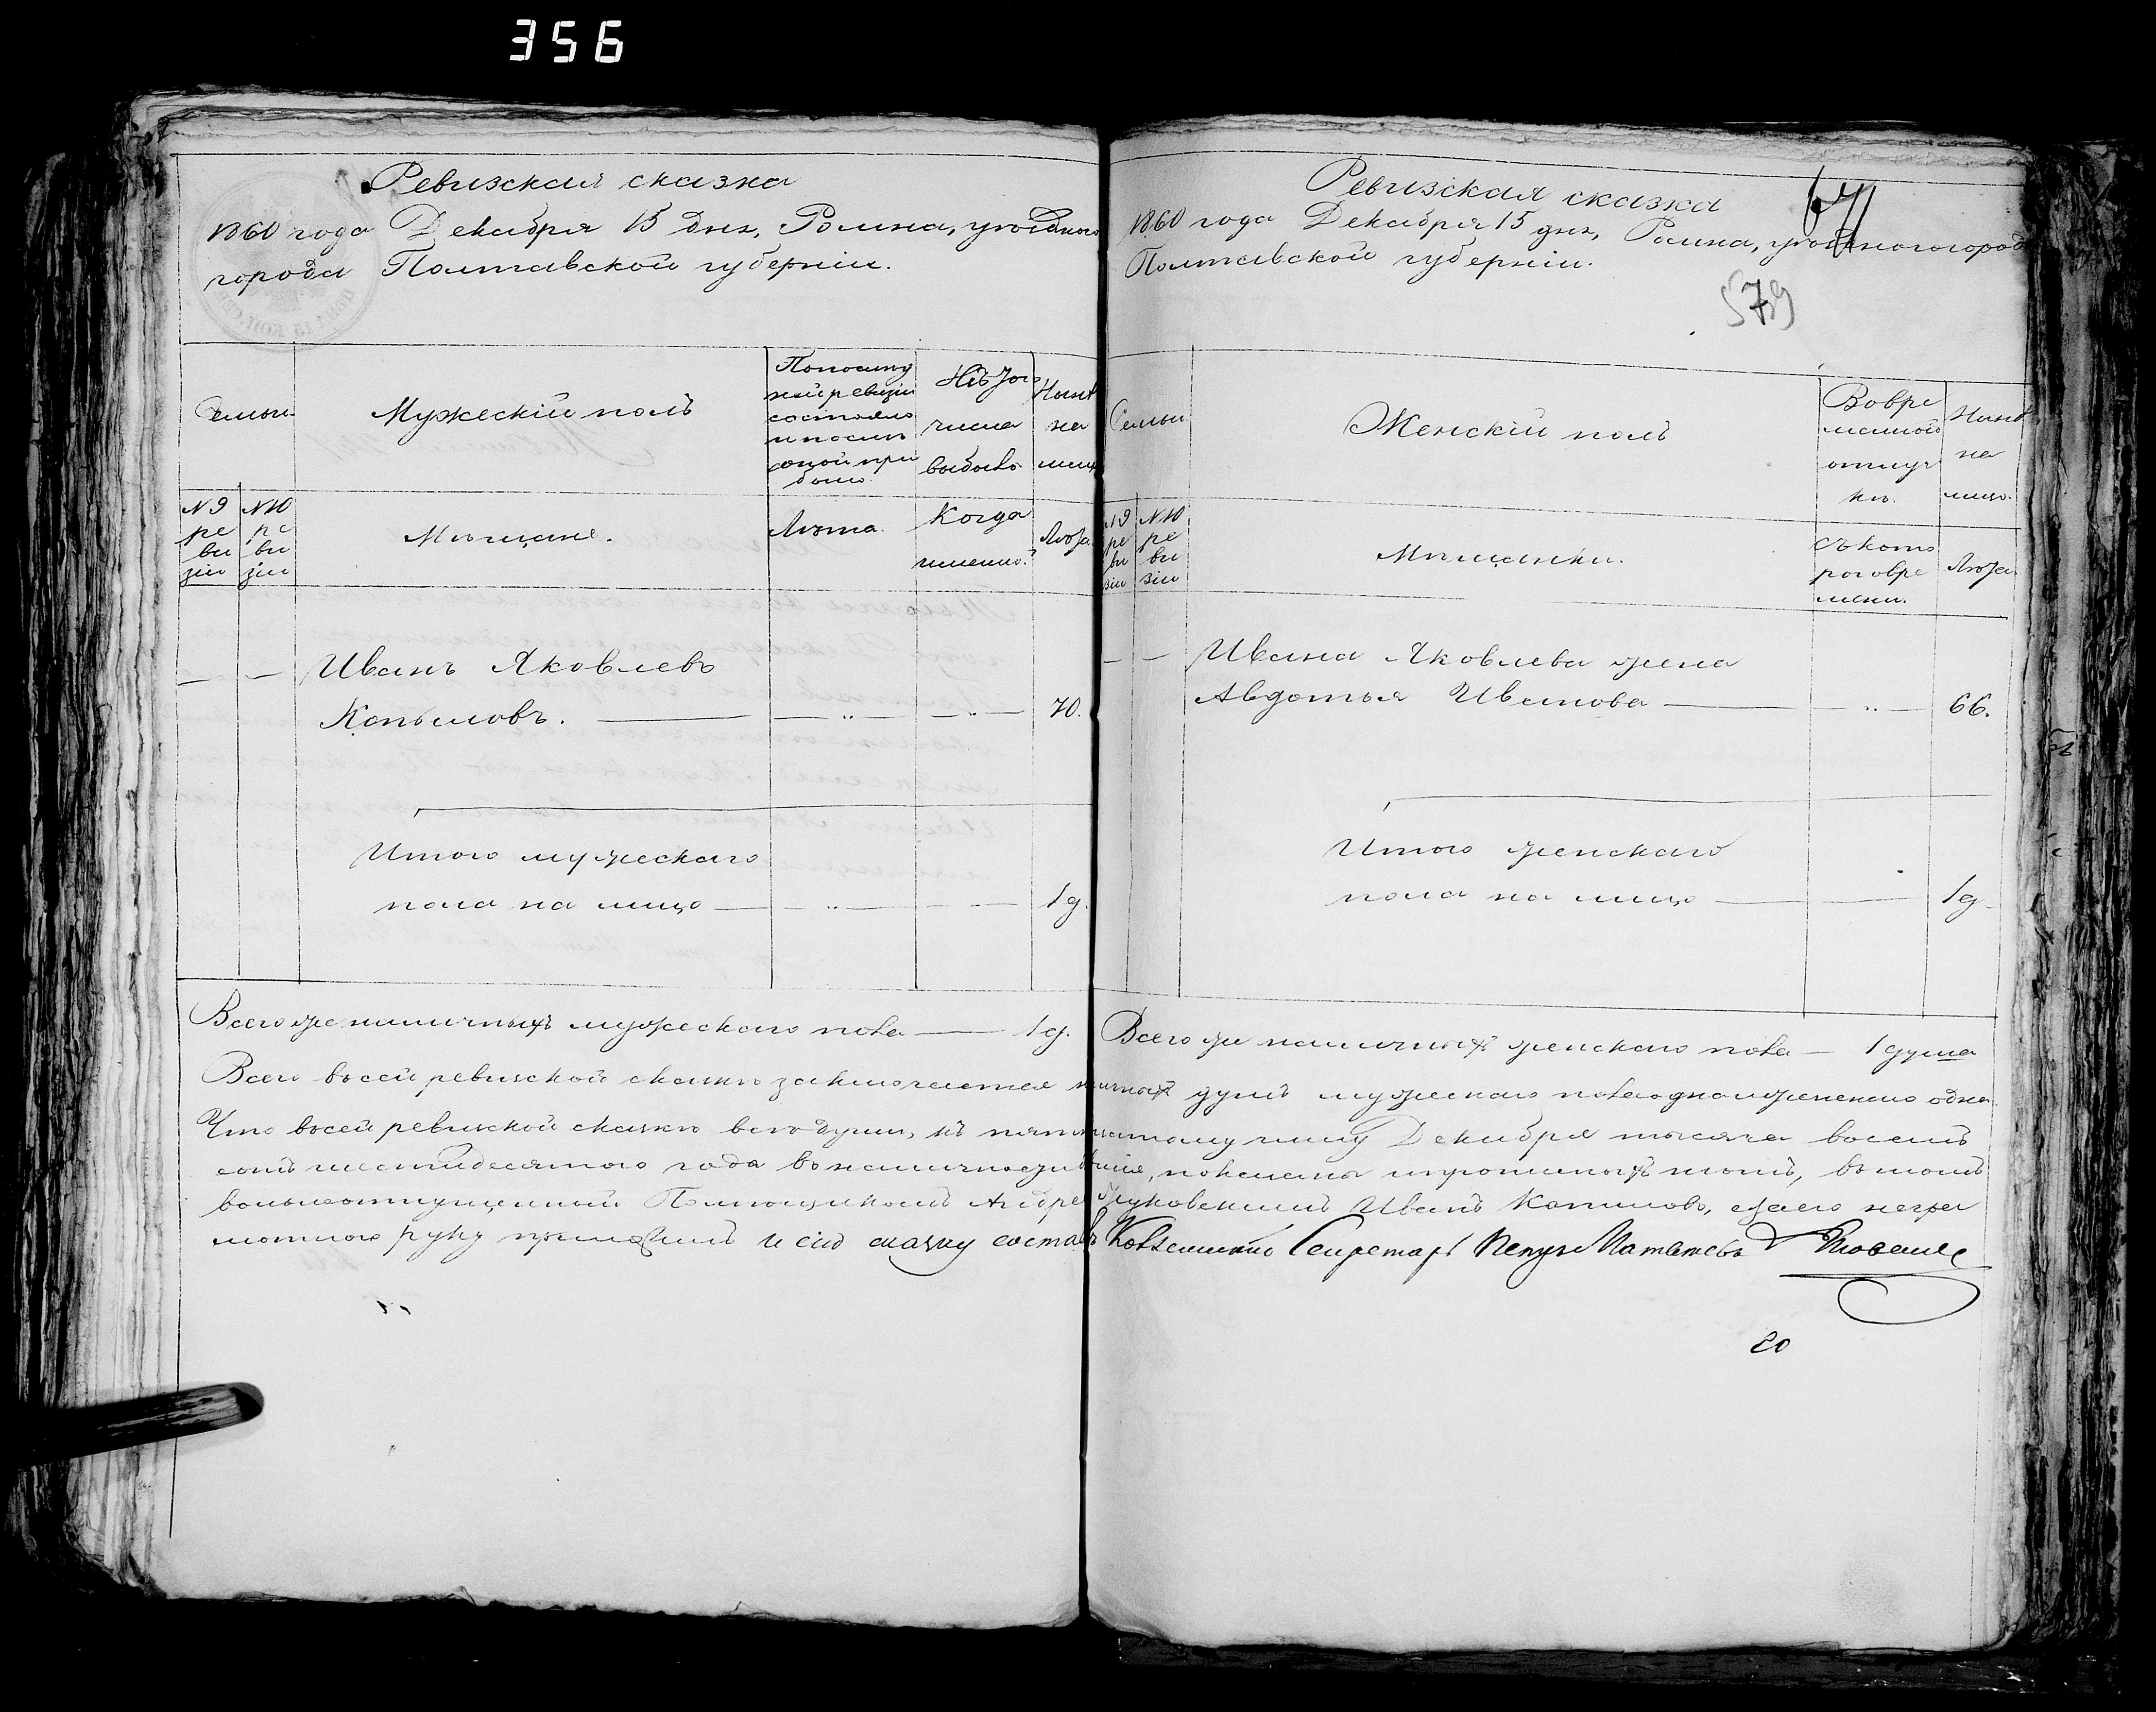 356
Ревизская сказка
1860 года Декабря 15 дня, Ромна, уѣзднаго
города Полтавской губерніи.
Семьи
Мужескій полъ
По послѣд
ней ревизіи
состояло
и послѣ
оной при
было.
Изъ того
числа
выбыло
Нынѣ
на
лицо
№ 9 ре ви зіи
№ 10 ре ви зіи
Мѣщане.
Лѣта.
Когда
именно?
Лѣта
Иванъ Яковлевъ
Копыловъ. 70.
Итого мужескаго
пола на лицо 1 д.
Всего же наличныхъ мужескаго пола 1 д.
Ревизская сказка
1860 года Декабря 15 дня, Ромна, уѣзднаго город
Полтавской губерніи.
579
Семьи
Женскій полъ
Во вре
менной
отлуч
кѣ.
Нынѣ
на
лицо.
№ 9 ре ви зіи
№ 10 ре ви зіи
Мѣщанки.
Съ кото
раго вре
мени.
Лѣта
Ивана Яковлева жена
Авдотья Иванова 66.
Итого женскаго
пола на лицо 1 д.
Всего же наличныхъ женскаго пола 1 душа
Всего въ сей ревизской сказкѣ заключается душъ мужескаго пола одна и женскаго одна
Что въ сей ревизской сказкѣ всѣ души, къ числу Декабря тысяча восемь
сотъ шестидесятаго года въ наличности показаны и пропилныхъ нѣтъ, въ томъ
вольноотпущенный Иванъ Копыловъ, а за его негра
мотного руку приложилъ и сію сказку состав Секретарь
20